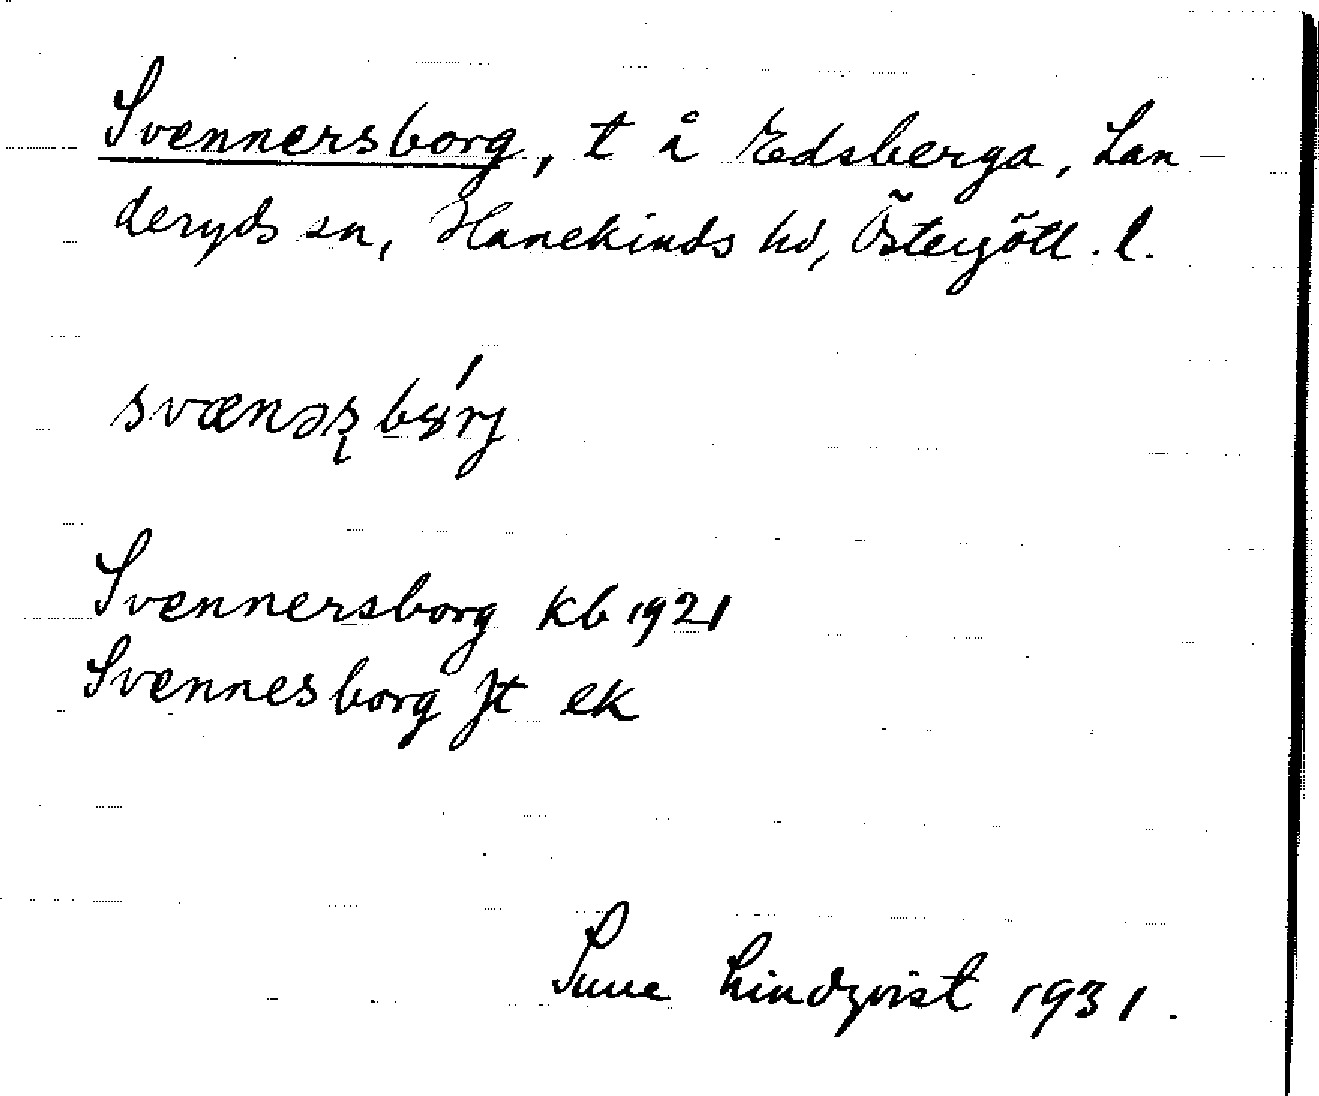 Svennersborg, t å Edsberga, Lan-
deryds sn, Hanekinds hd, Östergötl. l.
svænəʂbȣ́rj
Svennersborg kb 1921
Svennesborg Jt ek
Sune Lindqvist 1931.